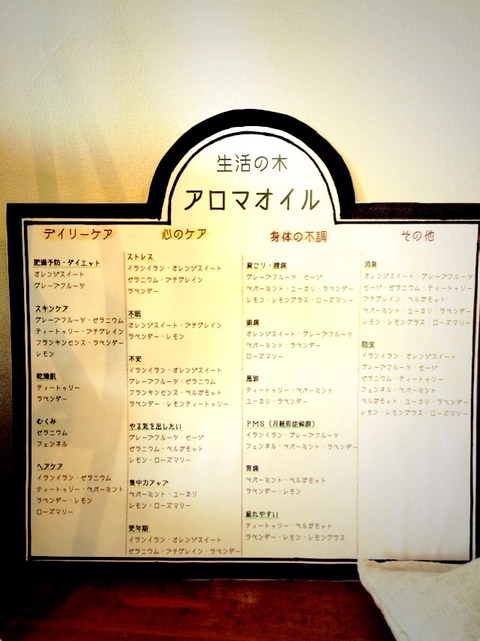 生活の木
アロマオイル
デイリーケア
肥満予防・ダイエット
オレンジスイート
グレープフルーツ
スキンケア
グレープフルーツ・ゼラニウム
ティートゥリー・プチグレイン
フランキンセンス・ラベンダー
レモン
乾燥肌
ティートゥリー
ラベンダー
むくみ
ゼラニウム
フェンネル
ヘアケア
イランイラン・ゼラニウム
ティートゥリー・ペパーミント
ラベンダー・レモン
ローズマリー
心のケア
ストレス
イランイラン・オレンジスイート
ゼラニウム・プチグレイン
ラベンダー
不眠
オレンジスイート・プチグレイン
ラベンダー
不安
イランイラン・オレンジスイート
グレープフルーツ・ゼラニウム
フランキンセンス・ベルガモット
ラベンダー・レモンティートゥリー
やる気を出したい
グレープフルーツ・セージ
ゼラニウム・ベルガモット
レモン・ローズマリー
集中力アップ
ペパーミント・ユーカリ
レモン・ローズマリー
更年期
イランイラン・オレンジスイート
ゼラニウム・プチグレイン・ラベンダー
身体の不調
肩こり・腰痛
グレープフルーツ・セージ
ペパーミント・ユーカリ・ラベンダー
レモン・レモングラス・ローズマリー
頭痛
オレンジスイート・グレープフルーツ
ペパーミント・ラベンダー
ローズマリー
風邪
ティートゥリー・ペパーミント
ユーカリ・ラベンダー
PMS（月経前症候群）
イランイラン・グレープフルーツ
フェンネル・ペパーミント・ラベンダー
胃痛
ペパーミント・ベルガモット
ラベンダー・レモン
疲れやすい
ティートゥリー・ベルガモット
ラベンダー・レモン・レモングラス
その他
消臭
オレンジスイート・グレープフルーツ
セージ・ゼラニウム・ティートゥリー
プチグレイン・ベルガモット
ペパーミント・ユーカリ・ラベンダー
レモン・レモングラス・ローズマリー
防虫
イランイラン・オレンジスイート
グレープフルーツ・セージ
ゼラニウム・ティートゥリー
フェンネル・ペパーミント
ベルガモット・ユーカリ・ラベンダー
レモン・レモングラス・ローズマリー